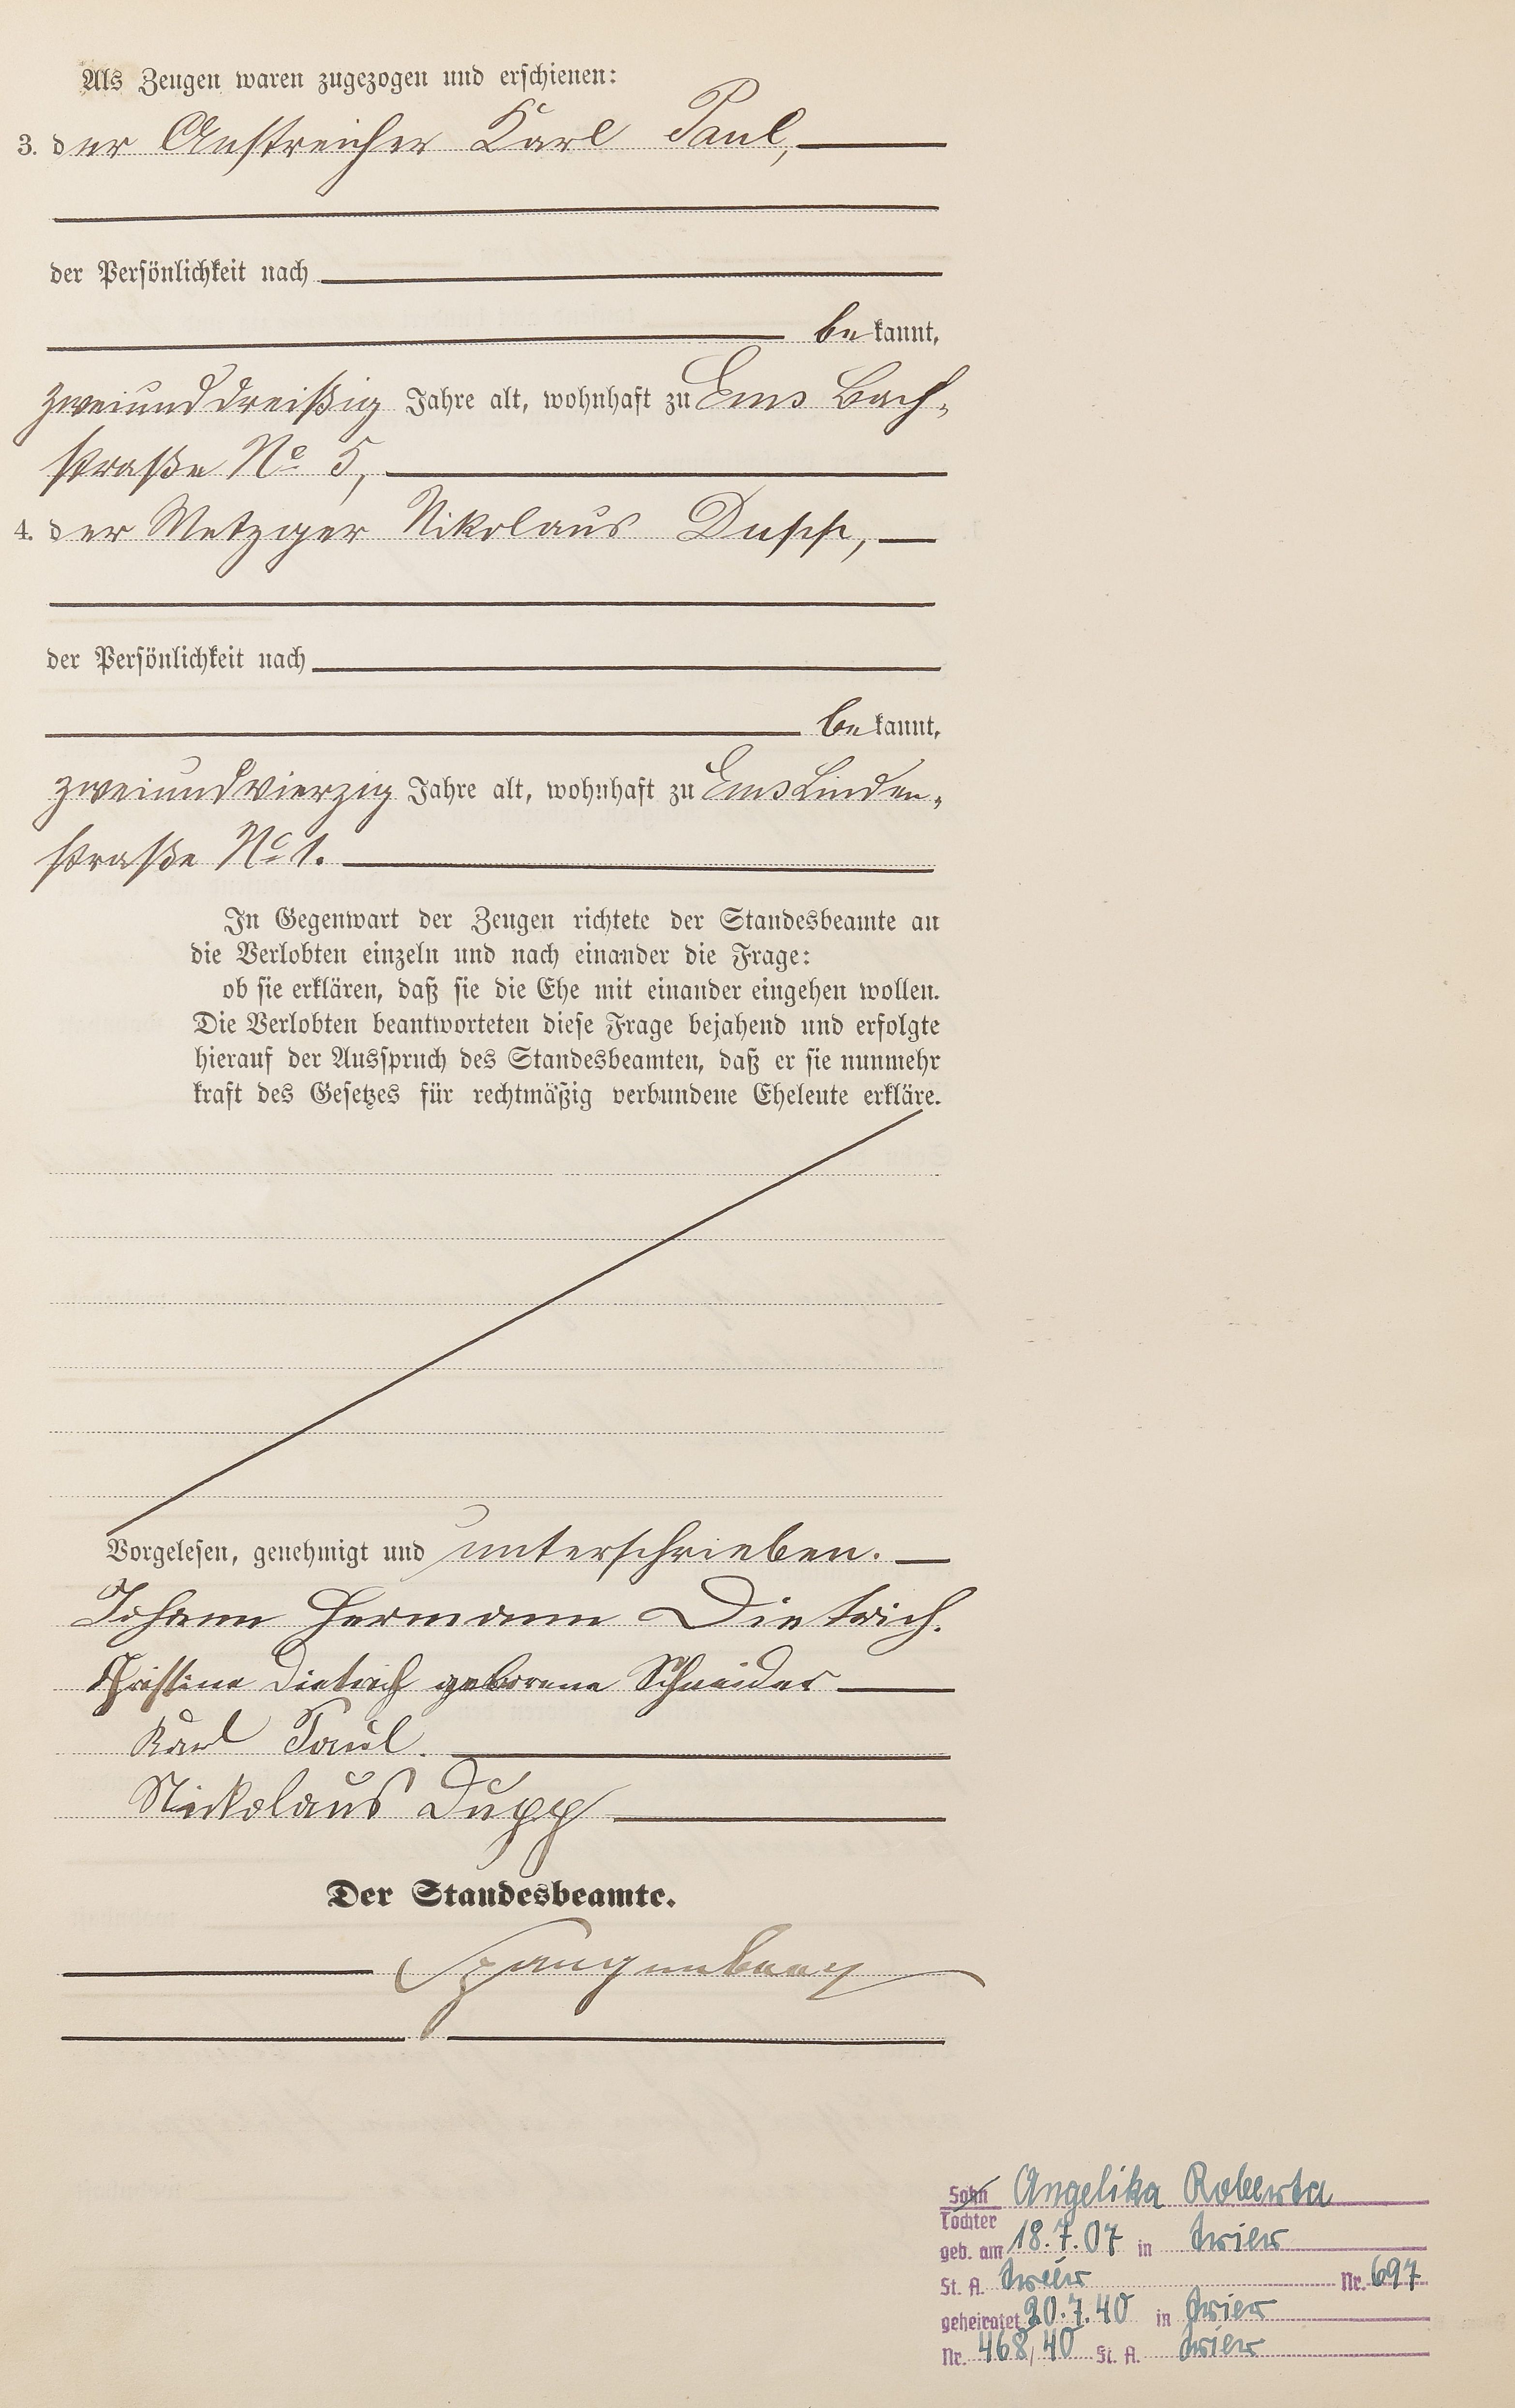 Als Zeugen waren zugezogen und erschienen:
3. der Anstreicher Karl Paul,
der Persönlichkeit nach
bekannt,
zweiunddreißig Jahre alt, wohnhaft zu Ems Bach-
straße No 5,
4. der Metzger Nikolaus Dupp,
der Persönlichkeit nach
bekannt,
zweiundvierzig Jahre alt, wohnhaft zu Ems Linden-
straße No 1.
In Gegenwart der Zeugen richtete der Standesbeamte an
die Verlobten einzeln und nach einander die Frage:
ob sie erklären, daß sie die Ehe mit einander eingehen wollen.
Die Verlobten beantworteten diese Frage bejahend und erfolgte
hierauf der Ausspruch des Standesbeamten, daß er sie nunmehr
kraft des Gesetzes für rechtmäßig verbundene Eheleute erkläre.
Vorgelesen, genehmigt und unterschrieben.
Johann Hermann Dietrich.
Christine Dietrich geborene Schneider
Karl Paul.
Nickolaus Dupp
Der Standesbeamte.
Spangenberg
Sohn Angelika Roberta
Tochter
geb. am 18.7.07 in Trier
St. A. Trier Nr. 697
geheiratet 20.7.40 in Trier
Nr. 468/40 St. A. Trier